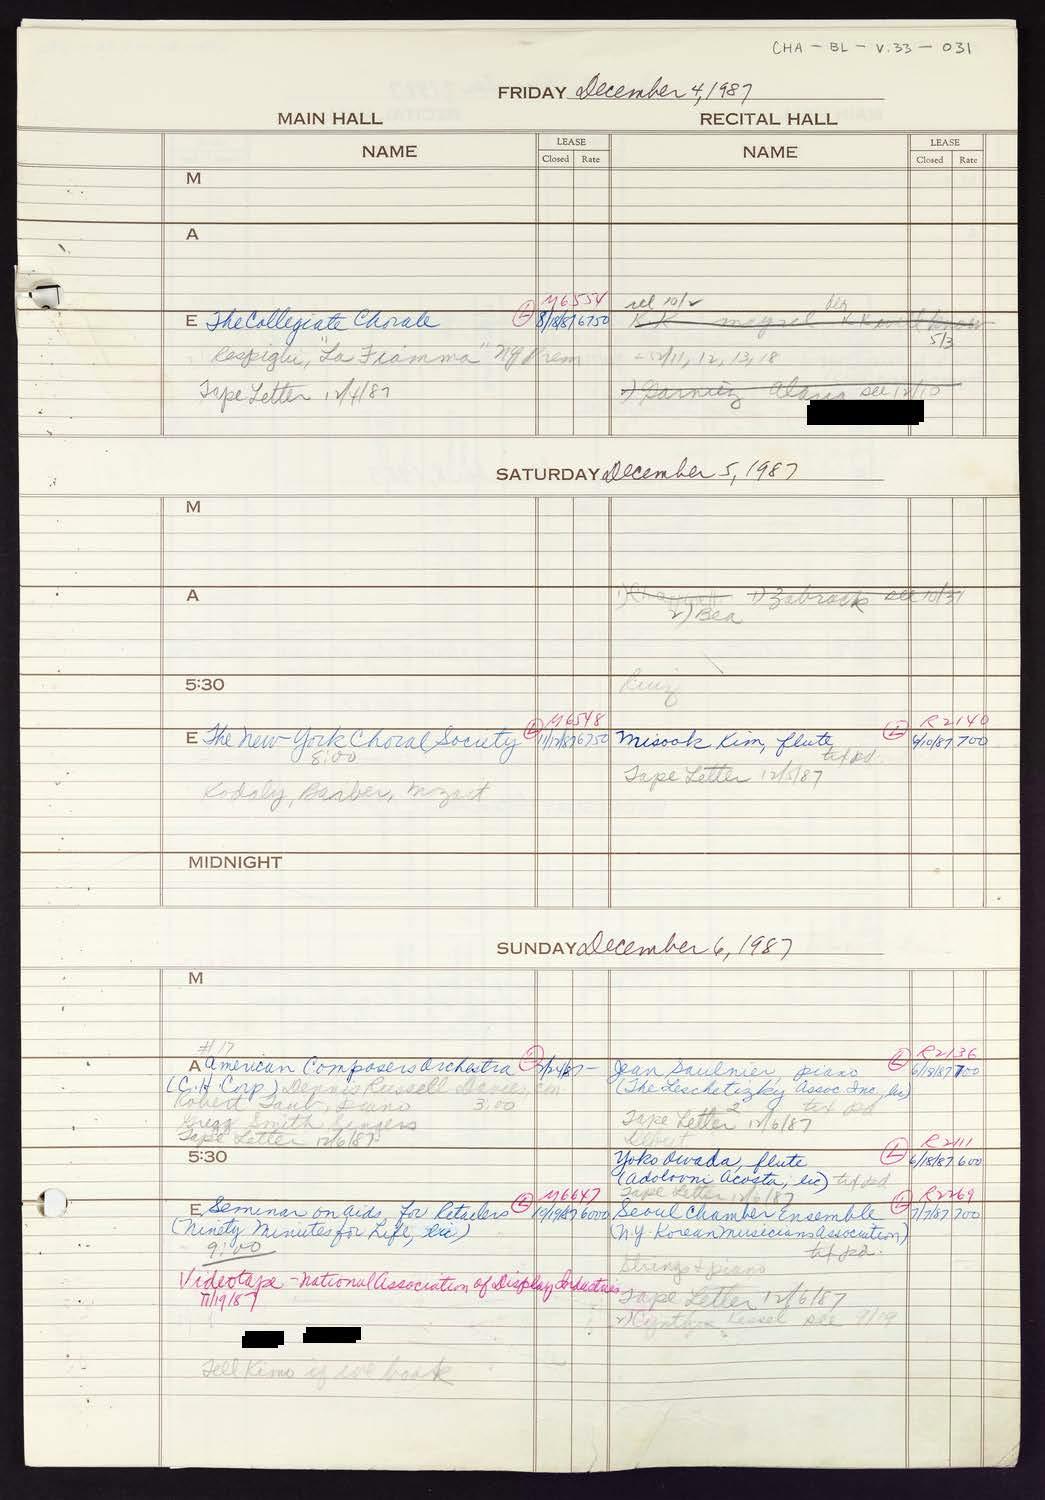 CHA - BL - V.33 - 031
FRIDAY December 4, 1987
MAIN HALL
RECITAL HALL
NAME
LEASE
Closed Rate
NAME
LEASE
Closed Rate
M
A
M6554
E The Collegiate Chorale L 8/18/87 6750
Respighi, "La Fiamma" NY Prem
Tape Letter 12/4/87
rel 10/2
5/3
- 12/11, 12, 13, 18
see 12/10
SATURDAY December 5, 1987
M
A
1) Zabrack see 10/31
2) Bea
5:30
Ruiz
M6548
E The New York Choral Society L 11/12/87 6750
8:00
Kodaly, Barber, Mozart
R2140
Misook Kim, flute L 6/10/87 700
txt pd.
Tape Letter 12/5/87
MIDNIGHT
SUNDAY December 6, 1987
M
#17
A American Composers Orchestra
(C.H. Corp) Dennis Russell Davies, con
Robert Taub, piano 3:00
Gregg Smith Singers
Tape Letter 12/6/87
R2136
Jean Saulnier, piano L 6/8/87 700
(The Leschetizky Assoc. Inc., lic)
txt pd
Tape Letter 12/6/87
5:30
R2111
Yoko Owada, flute L 6/18/87 600
(Adolovni Acosta, lic) txt pd
Tape Letter 12/6/87
M6647
E Seminar on aids for Retailers L 10/19/87 6000
(Ninety Minutes for Life, lic)
9:00
Videotape - National Association of Display Industries
11/19/87
Tell Kimo if we book
R2269
Seoul Chamber Ensemble L 7/7/87 700
(N.Y. Korean Musicians Association)
txt pd.
Strings & piano
Tape Letter 12/6/87
2) Cynthia see 9/19